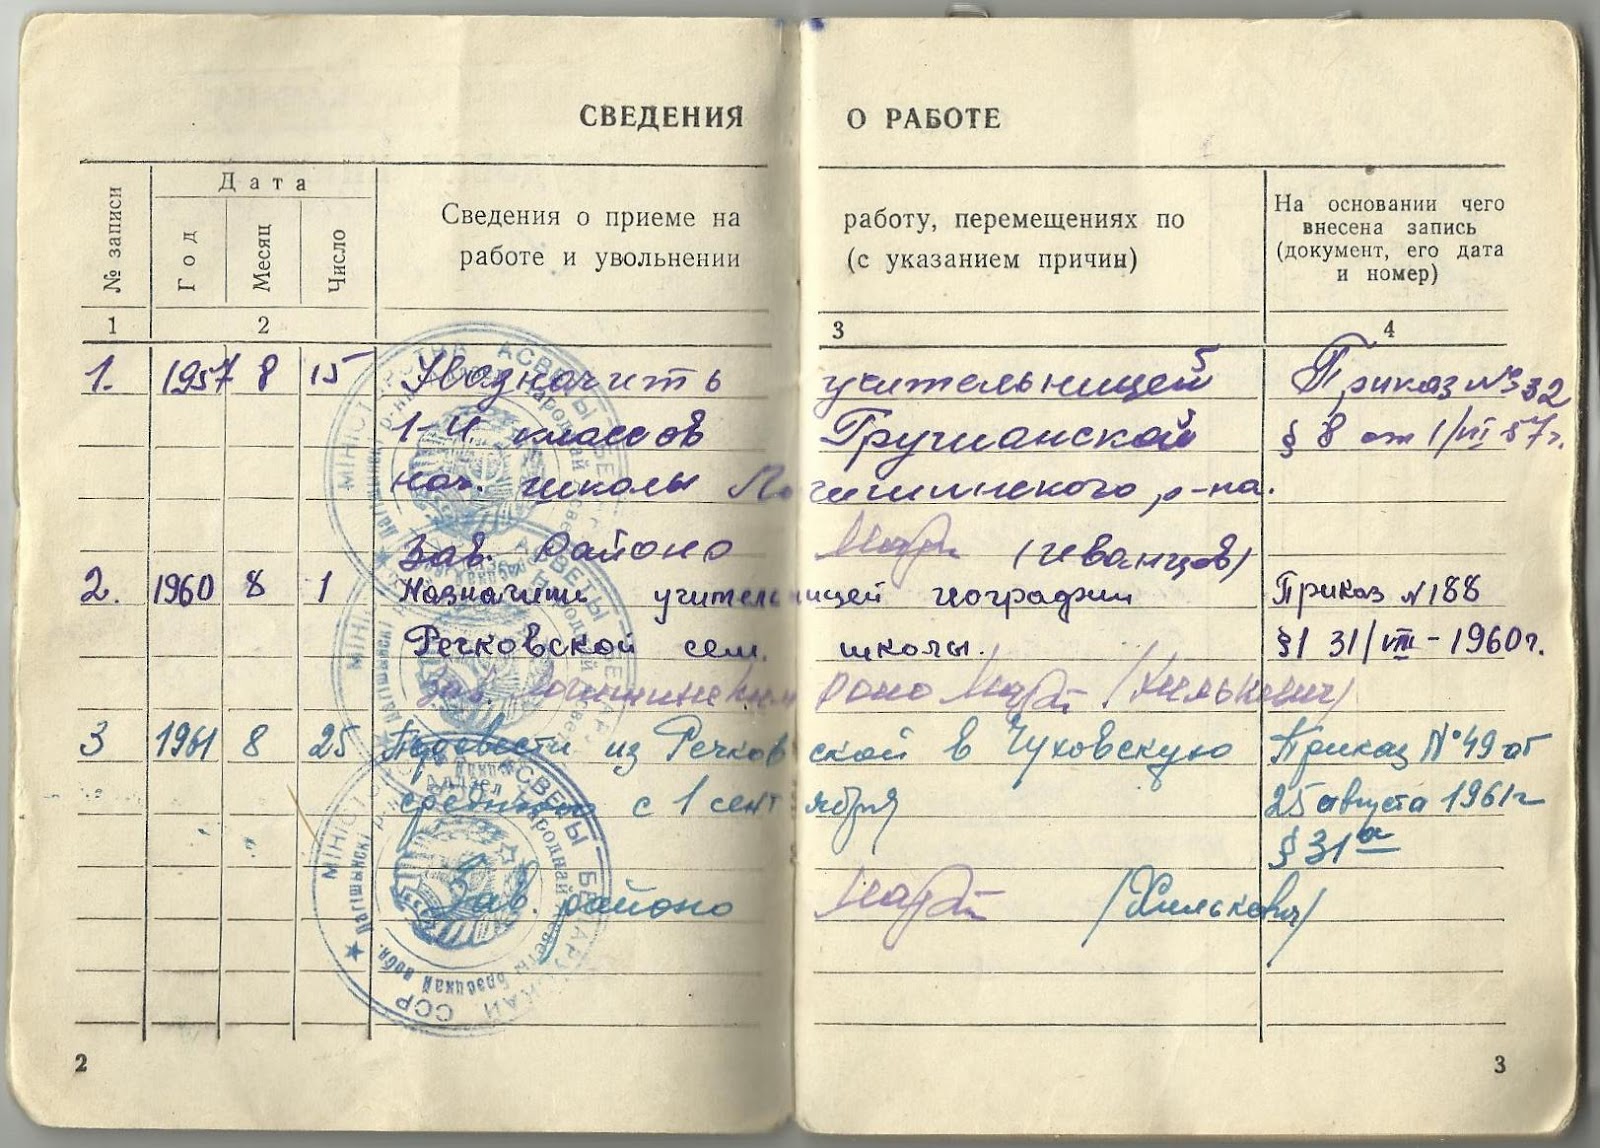 СВЕДЕНИЯ О РАБОТЕ
№ записи
Дата
Год
Месяц
Число
Сведения о приеме на работу, перемещениях по
работе и увольнении (с указанием причин)
На основании чего
внесена запись
(документ, его дата
и номер)
1 2 3 4
1. 1957 8 15 учительницей Приказ № 32
1-4 классов § 8 от 1/VIII 57 г.
нач. школы Логишинского р-на.
Зав. Районо
2. 1960 8 1 Назначить учительницей географии Приказ N 188
Речковской сем. школы. § 1 31/VIII - 1960 г.
Зав. Логишинским роно /Хилькевич/
3 1961 8 25 Перевести из Речковской в Чуховскую Приказ № 49 от
среднюю с 1 сентября 25 августа 1961 г
§ 31 а
Зав. районо /Хилькевич/
МІНІСТЭРСТВА АСВЕТЫ БЕЛАРУСКАЙ ССР
Лагішынскі р-нны аддзел народнай асветы Брэсцкай вобл.
2
3